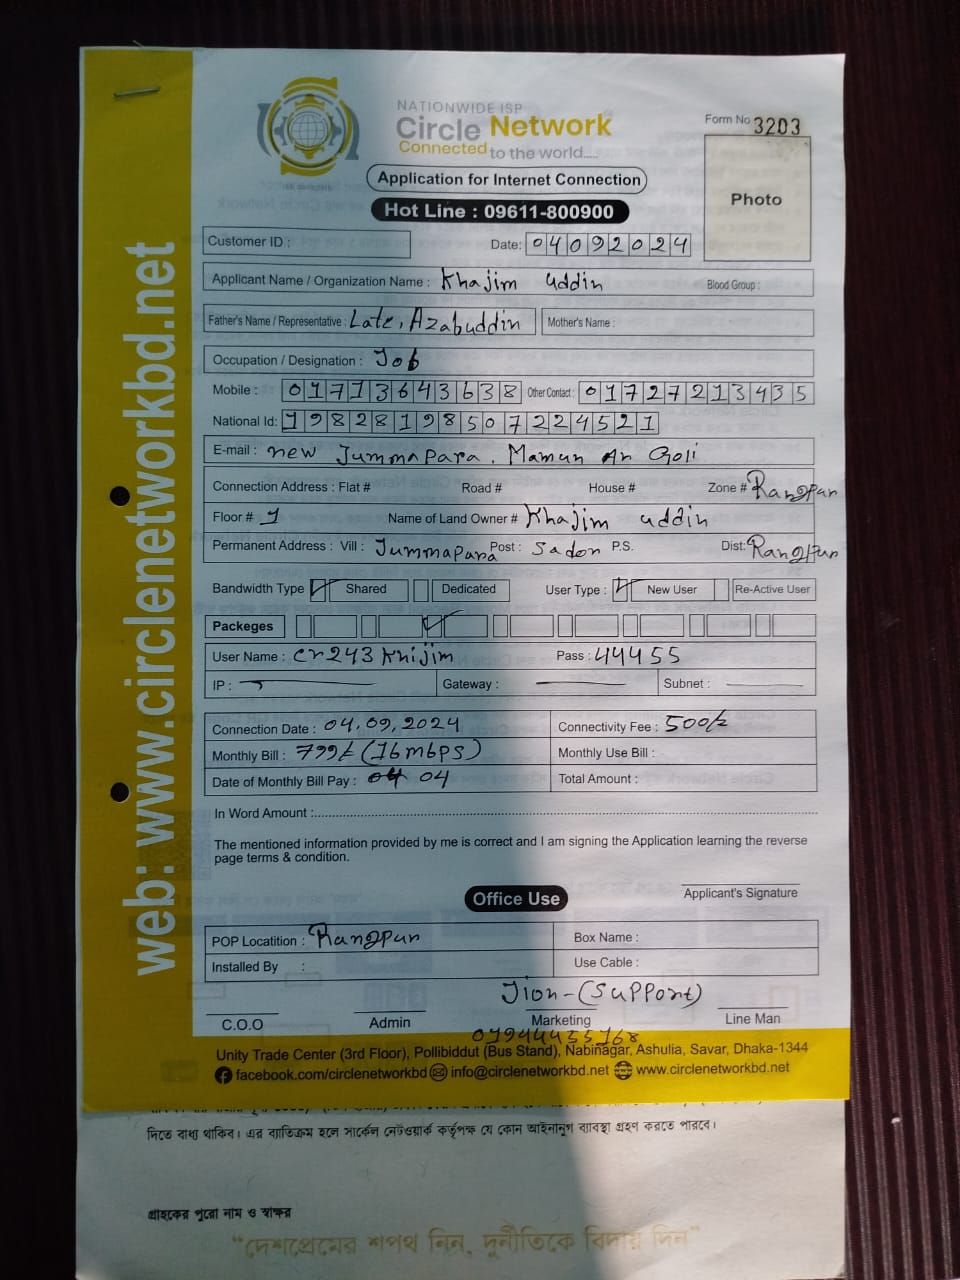 NATIONWIDE ISP
Circle Network
Connected to the world.....
Form No 3203
Photo
Application for Internet Connection
Hot Line : 09611-800900
Customer ID :
Date: 04092024
Applicant Name / Organization Name : Khajim uddin Blood Group :
Father's Name / Representative : Late, Azabuddin Mother's Name :
Occupation / Designation : Job
Mobile : 01713643638 Other Contact : 01727213435
National Id: 19828198507224521
E-mail : new Jummapara. Mamun Ar Goli
Connection Address : Flat # Road # House # Zone # Rangpur
Floor # 1 Name of Land Owner # Khajim uddin
Permanent Address : Vill : Jummapara Post : Sador P.S. Dist: Rangpur
Bandwidth Type Shared Dedicated User Type : New User Re-Active User
Packeges
User Name : cr243 Khijim Pass : 44455
IP : Gateway : Subnet :
Connection Date : 04.09.2024 Connectivity Fee : 500/-
Monthly Bill : 799/- (16mbps) Monthly Use Bill :
Date of Monthly Bill Pay : 04 Total Amount :
In Word Amount :
The mentioned information provided by me is correct and I am signing the Application learning the reverse
page terms & condition.
Applicant's Signature
Office Use
POP Locatition : Rangpur Box Name :
Installed By : Use Cable :
Jion-(Support)
C.O.O Admin Marketing Line Man
Unity Trade Center (3rd Floor), Pollibiddut (Bus Stand), Nabinagar, Ashulia, Savar, Dhaka-1344
facebook.com/circlenetworkbd info@circlenetworkbd.net www.circlenetworkbd.net
web: www.circlenetworkbd.net
দিতে বাধ্য থাকিব। এর ব্যতিক্রম হলে সার্কেল নেটওয়ার্ক কর্তৃপক্ষ যে কোন আইনানুগ ব্যাবস্থা গ্রহণ করতে পারবে।
গ্রাহকের পুরো নাম ও স্বাক্ষর
“দেশপ্রেমের শপথ নিন, দুর্নীতিকে বিদায় দিন”